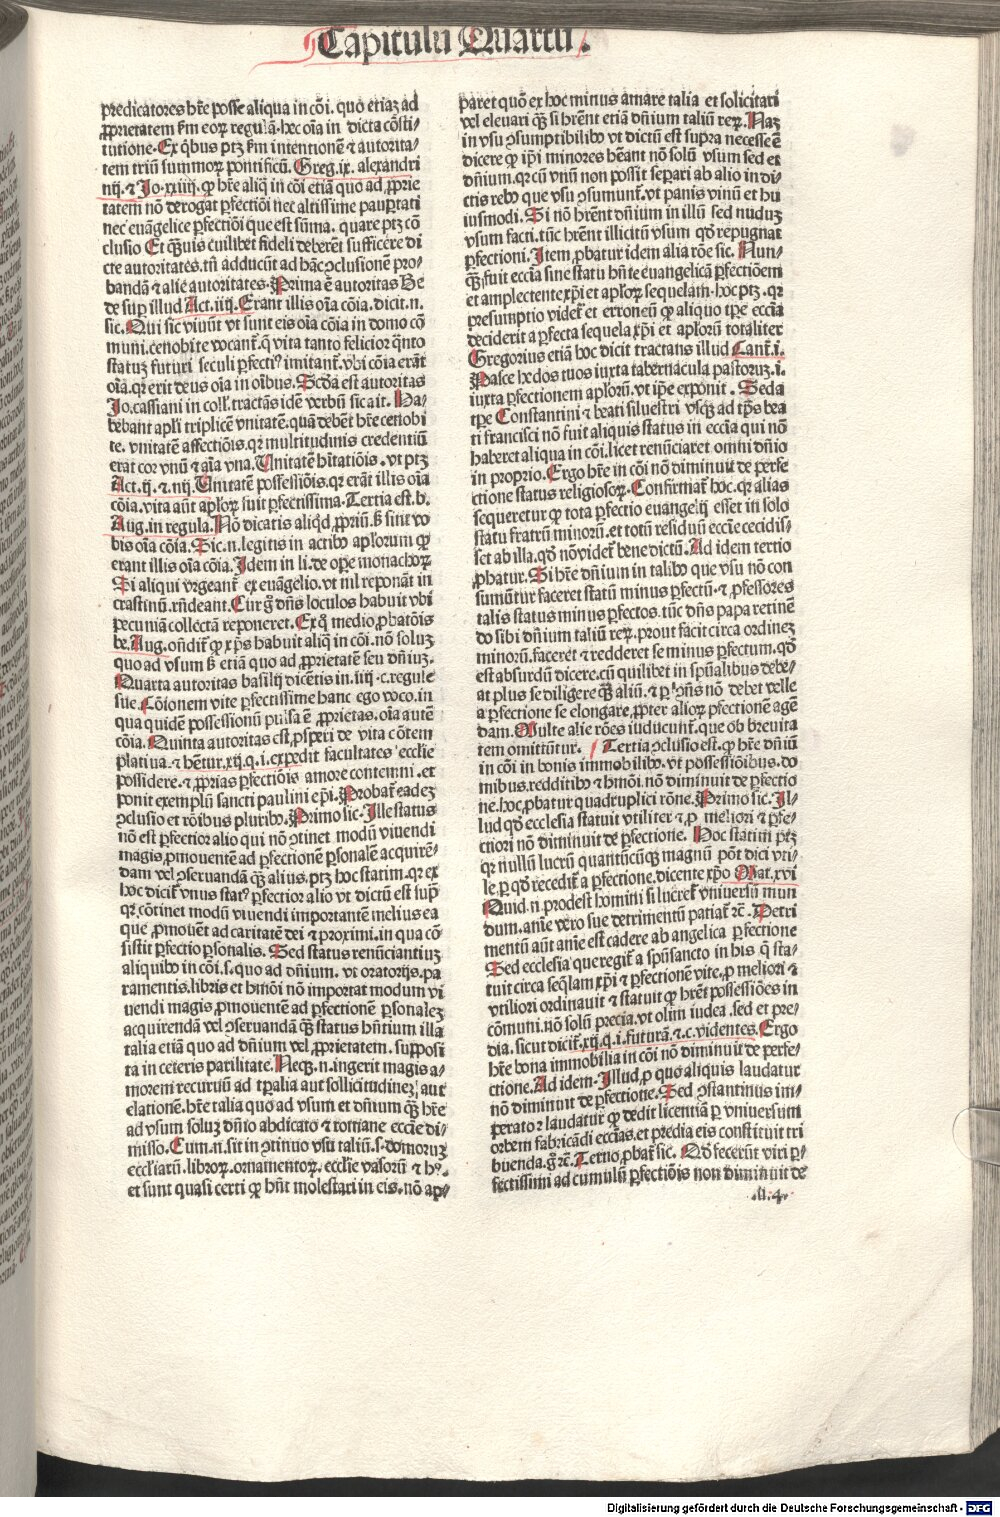 Capitulũ Quartũ.
predicatores hr̃e posse aliqua in cõi. quo etiaʒ ad
ꝓprietatem ẜm eoꝝ regulã. hec oĩa in dicta cõsti-
tutione. Ex q̃bus ptʒ ẜm intentionẽ ⁊ autorita-
tem triũ summoꝝ pontificũ. Greg. ix. alexandri
iiij. ⁊ Jo. xxiiij. ꝙ hr̃e aliq̃ in cõi etiã quo ad ꝓprie
tatem nõ derogat ꝑfectiõi nec altissime pauꝑtati
nec euãgelice ꝑfectiõi que est sũma. quare ptʒ cõ
clusio Et q̃ꝫuis cuilibet fideli deberẽt sufficere di
cte autoritates. tñ adducũt ad hãc ꝯclusionẽ pro-
bandã ⁊ alie autoritates. Prima ẽ autoritas Be
de suꝑ illud Act. iiij. Erant illis oĩa cõia. dicit. n.
sic. Qui sic viuũt vt sunt eis oĩa cõia in domo cõ
muni. cenobite vocant̃. q̃ vita tanto felicior q̃nto
statuʒ futuri seculi ꝑfectiꝰ imitant̃. vbi cõia erãt
oĩa. qꝛ erit deus oĩa in oĩbus. Scða est autoritas
Jo. cassiani in coll̃. tractãs idẽ verbũ sic ait. Ha-
bebant apl̃i triplicẽ vnitatẽ. quã debẽt hr̃e cenobi
te. vnitatẽ affectiõis. qꝛ multitudinis credentiũ
erat cor vnũ ⁊ aĩa vna. Unitatẽ hĩtatiõis. vt ptʒ
Act. ij. ⁊. iiij. Unitatẽ possessiõis. qꝛ erãt illis oĩa
cõia. vita aũt apl̃oꝝ fuit ꝑfectissima. Tertia est. b.
Aug. in regula. Nõ dicatis aliqd̃ ꝓpriũ. ẜ sint vo
bis oĩa cõia. Sic. n. legitis in actibꝰ apl̃orum ꝙ
erant illis oĩa cõia. Idem in li. de oꝑe monachoꝝ
Si aliqui vrgeant̃ ex euãgelio. vt nil reponãt in
crastinũ. rñdeant. Cur g̃ dñs loculos habuit vbi
pecuniã collectã reponeret. Ex q̃ medio ꝓbatõis
be. Aug. oñdit̃ ꝙ xp̃s habuit aliq̃ in cõi. nõ soluʒ
quo ad vsum ẜ etiã quo ad ꝓprietatẽ seu dñiuʒ.
Quarta autoritas basilij dicẽtis in. iiij. c. regule
sue. Cõionem vite ꝑfectissime hanc ego voco. in
qua quidẽ possessionũ pulsa ẽ ꝓprietas. oĩa autẽ
cõia. Quinta autoritas est ꝓsperi de vita cõtem
platiua. ⁊ hẽtur. xij. q. i. expedit facultates ecclie
possidere. ⁊ ꝓprias ꝑfectiõis amore contemni. et
ponit exemplũ sancti paulini ep̃i. Probat̃ eadeʒ
ꝯclusio et rõibus pluribꝰ. Primo sic. Ille status
nõ est ꝑfectior alio qui nõ ꝯtinet modũ viuendi
magis ꝓmouentẽ ad ꝑfectionẽ ꝑsonalẽ acquirẽ-
dam vel ꝯseruandã q̃ꝫ alius. ptʒ hoc statim. qꝛ ex
hoc dicit̃ vnus statꝰ ꝑfectior alio vt dictũ est sup̃
qꝛ cõtinet modũ viuendi importantẽ melius ea
que ꝓmouẽt ad caritatẽ dei ⁊ proximi. in qua cõ
sistit ꝑfectio ꝑsonalis. Sed status renũciantiuʒ
aliquibꝰ in cõi. s. quo ad dñium. vt oratorijs. pa
ramentis. libris et hmõi nõ importat modum vi
uendi magis ꝓmouentẽ ad ꝑfectionẽ ꝑsonaleʒ
acquirendã vel ꝯseruandã q̃ꝫ status hñtium illa
talia etiã quo ad dñium vel ꝓprietatem. supposi
ta in ceteris parilitate. Necꝫ. n. ingerit magis a-
morem recursũ ad tp̃alia aut sollicitudineʒ aut
elationẽ. hr̃e talia quo ad vsum et dñium q̃ꝫ hr̃e
ad vsum soluʒ dñio abdicato ⁊ romane eccĩe di-
misso. Cum. n. sit in ꝯtinuo vsu taliũ. s. domoruʒ
eccl̃iarũ. libroꝝ. ornamentoꝝ. ecclie vasorũ ⁊ hꝰ.
et sunt quasi certi ꝙ hñt molestari in eis. nõ ap-
paret quõ ex hoc minus amare talia et solicitari
vel eleuari q̃ꝫ si hr̃ent etiã dñium taliũ reꝝ. Naʒ
in vsu ꝯsumptibilibꝰ vt dictũ est supra necesse ẽ
dicere ꝙ ip̃i minores hẽant nõ solũ vsum sed et
dñium. qꝛ cũ vnũ non possit seꝑari ab alio in di-
ctis rebꝰ que vsu ꝯsumunt̃. vt panis vinũ et hu
iusmodi. Si nõ hr̃ent dñium in illũ sed nuduʒ
vsum facti. tũc hr̃ent illicitũ vsum qd̃ repugnat
ꝑfectioni. Item ꝓbatur idem alia rõe sic. Nun-
q̃ꝫ fuit eccĩa sine statu hñte euangelicã ꝑfectiõem
et amplectente xp̃i et apl̃oꝝ sequelam. hoc ptʒ. qꝛ
presumptio videt̃ et erroneũ ꝙ aliquo tp̃e eccĩa
deciderit a ꝑfecta sequela xp̃i et apl̃orũ totaliter
Gregorius etiã hoc dicit tractans illud Cant̃. i.
Pasce hedos tuos iuxta tabernacula pastoruʒ. i.
iuxta ꝑfectionem apl̃orũ. vt ip̃e exponit. Sed a
tp̃e Constantini ⁊ beati siluestri vsq̃ꝫ ad tp̃s bea
ti francisci nõ fuit aliquis status in eccĩa qui nõ
haberet aliqua in cõi. licet renũciaret omni dñio
in proprio. Ergo hr̃e in cõi nõ diminuit de perfe
ctione status religiosoꝝ. Confirmat̃ hoc. qꝛ alias
sequeretur ꝙ tota ꝑfectio euangelij esset in solo
statu fratrũ minorũ. et totũ residuũ eccĩe cecidis-
set ab illa. qd̃ nõ videt̃ bene dictũ. Ad idem tertio
ꝓbatur. Si hr̃e dñium in talibꝰ que vsu nõ con
sumũtur faceret statũ minus ꝑfectũ. ⁊ ꝓfessores
talis status minus ꝑfectos. tũc dñs papa retinẽ
do sibi dñium taliũ reꝝ. prout facit circa ordineʒ
minorũ. faceret ⁊ redderet se minus ꝑfectum. qd̃
est absurdũ dicere. cũ quilibet in spũalibus debe-
at plus se diligere q̃ꝫ aliũ. ⁊ ꝑ ꝯñs nõ debet velle
a ꝑfectione se elongare ꝓpter alioꝝ ꝑfectionẽ agẽ
dam. Multe alie rões iuducunt̃. que ob breuita
tem omittũtur. Tertia ꝯclusio est. ꝙ hr̃e dñiũ
in cõi in bonis immobilibꝰ. vt possessiõibus. do
mibus. redditibꝰ ⁊ hmõi. nõ diminuit de ꝑfectio
ne. hoc ꝓbatur quadruplici rõne. Primo sic. Il-
lud qd̃ ecclesia statuit vtiliter ⁊ ꝓ meliori ⁊ ꝑfe-
ctiori nõ diminuit de ꝑfectione. Hoc statim ptʒ
qꝛ nullũ lucrũ quantũcũqꝫ magnũ põt dici vti-
le ꝑ qd̃ recedit̃ a ꝑfectione. dicente xp̃o Mat. xvi
Quid. n. prodest homini si lucret̃ vniuersũ mun
dum. anĩe vero sue detrimentũ patiat̃ ⁊c. Detri
mentũ aũt anĩe est cadere ab angelica ꝑfectione
Sed ecclesia que regit̃ a spũsancto in his q̃ sta-
tuit circa seq̃lam xp̃i ⁊ ꝑfectionẽ vite. ꝓ meliori ⁊
vtiliori ordinauit ⁊ statuit ꝙ hr̃et possessiões in
cõmuni. nõ solũ precia. vt olim iudea. sed et pre-
dia. sicut dicit̃. xij. q. i. futurã. ⁊. c. videntes. Ergo
hr̃e bona immobilia in cõi nõ diminuit de perfe-
ctione. Ad idem. Illud ꝓ quo aliquis laudatur
nõ diminuit de ꝑfectione. Sed ꝯstantinus im-
perator laudatur ꝙ dedit licentiã ꝑ vniuersum
orbem fabricãdi eccĩas. et predia eis constituit tri
buenda. g̃ ⁊c. Tertio ꝓbat̃ sic. Qd̃ fecerũt viri ꝑ-
fectissimi ad cumulũ ꝑfectiõis non diminuit de
Digitalisierung gefördert durch die Deutsche Forschungsgemeinschaft - DFG